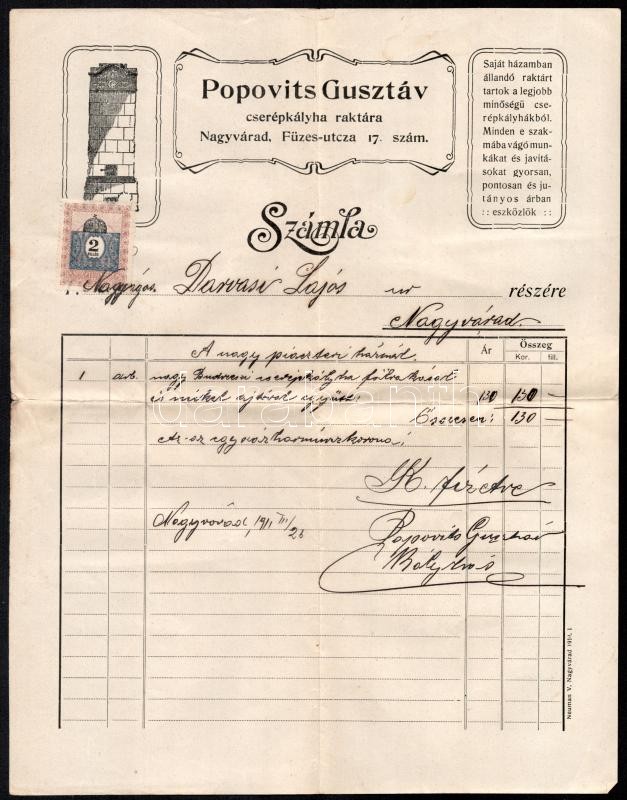 Popovits Gusztáv
cserépkályha raktára
Nagyvárad, Füzes-utcza 17. szám.
Saját házamban
állandó raktárt
tartok a legjobb
minőségű cse-
répkályhákból.
Minden e szak-
mába vágó mun-
kákat és javitá-
sokat gyorsan,
pontosan és ju-
tányos árban
:: eszközlök ::
Számla
2
Darvasi Lajos úr részére
Nagyvárad.
Ár Összeg
Kor. fill.
A nagy piaczteri háznál
1 drb. nagy cserépkályha
együtt: 130 130 —
Összesen: 130 —
Az-az egyszázharmincz korona
K. fizetve
Nagyvárad, 1911 III/26
Popovits Gusztáv
Kályhás
Neuman V. Nagyvárad 1910. I.
darabanth